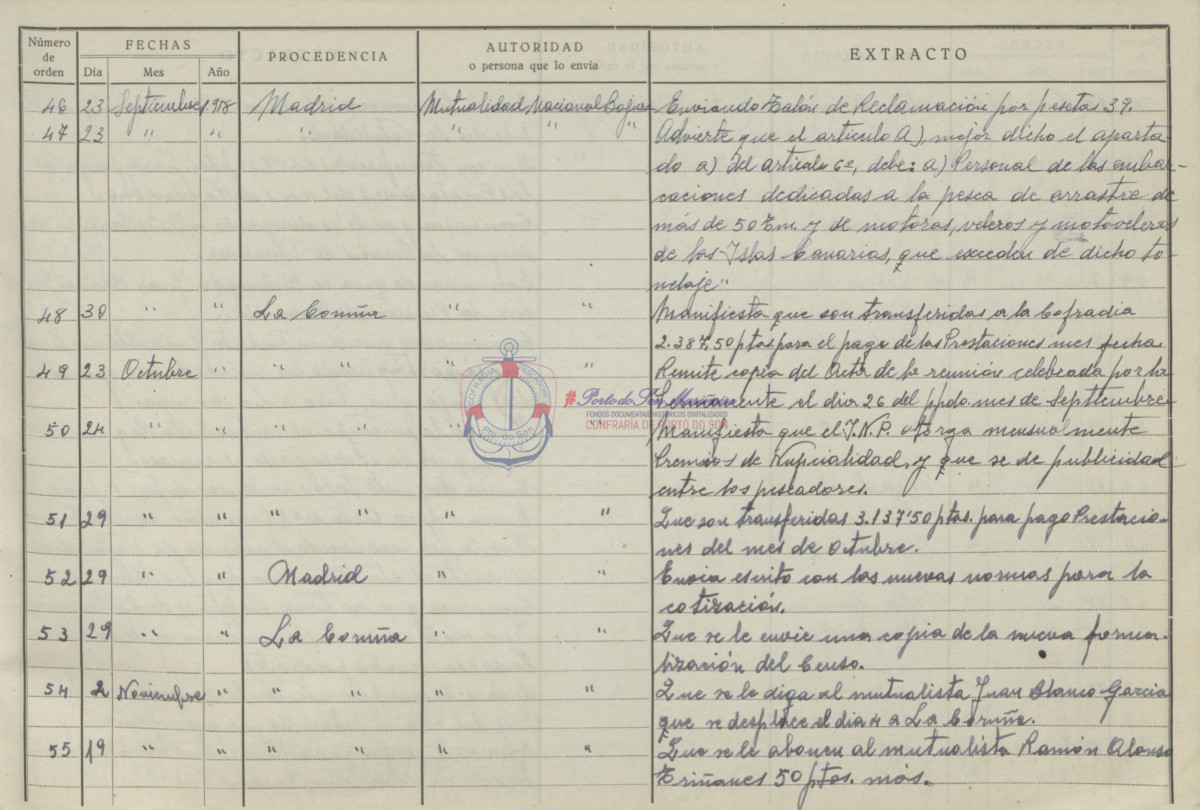 Número de orden FECHAS PROCEDENCIA AUTORIDAD o persona que lo envía EXTRACTO
Día Mes Año
46 23 Septiembre Madrid Mutualidad Nacional Enviando Talón de Reclamación por pesetas
47 23 " " " " " " Advierte que el articulo A), mejor dicho el aparta-
do a) del articulo 6º, debe: a) Personal de las embar-
caciones dedicadas a la pesca de arrastre de
más de 50 Tm. y de motoras, veleros y motoveleros
de las Islas Canarias, que exceden de dicho to-
nelaje"
48 30 " " La Coruña " " Manifiesta que son transferidas a la Cofradia
2.387,50 ptas para el pago de las Prestaciones mes fecha
49 23 Octubre " " " " " Remite copia del Acta de la reunión celebrada por la
Permanente el dia 26 del ppdo. mes de Septtiembre
50 24 " " " " " " Manifiesta que el I.N.P. otorga mensualmente
Premios de Nupcialidad, y que se de publicidad
entre los pescadores.
51 29 " " " " " " Que son transferidas 3.137'50 ptas. para pago Prestacio-
nes del mes de Octubre.
52 29 " " Madrid " " Envia escrito con las nuevas normas para la
cotización.
53 29 " " La Coruña " " Que se le envie una copia de la nueva formu-
lización del Censo.
54 2 Noviembre " " " " " Que se le diga al mutualista Juan Blanco Garcia
que se desplace el dia 4 a La Coruña.
55 19 " " " " " " Que se le abonen al mutualista Ramón Alonso
Triñanes 50 ptas. más.
CONFRARÍA PESCADORES
Pto. do Son
#Porto do Son Mariñeiro
FONDOS DOCUMENTAIS HISTÓRICOS DIXITALIZADOS
CONFRARÍA DE PORTO DO SON